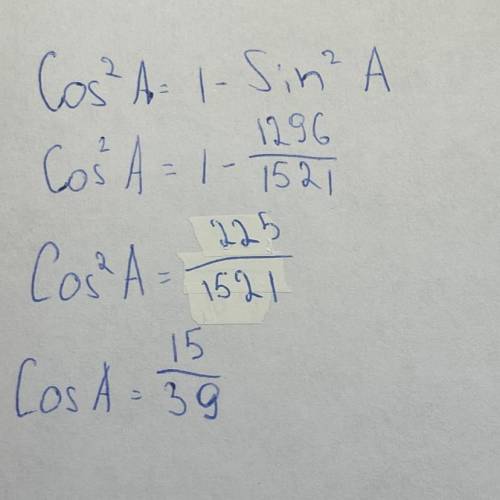 Cos² A = 1 - Sin² A
Cos² A = 1 - 1296/1521
Cos² A = 225/1521
Cos A = 15/39